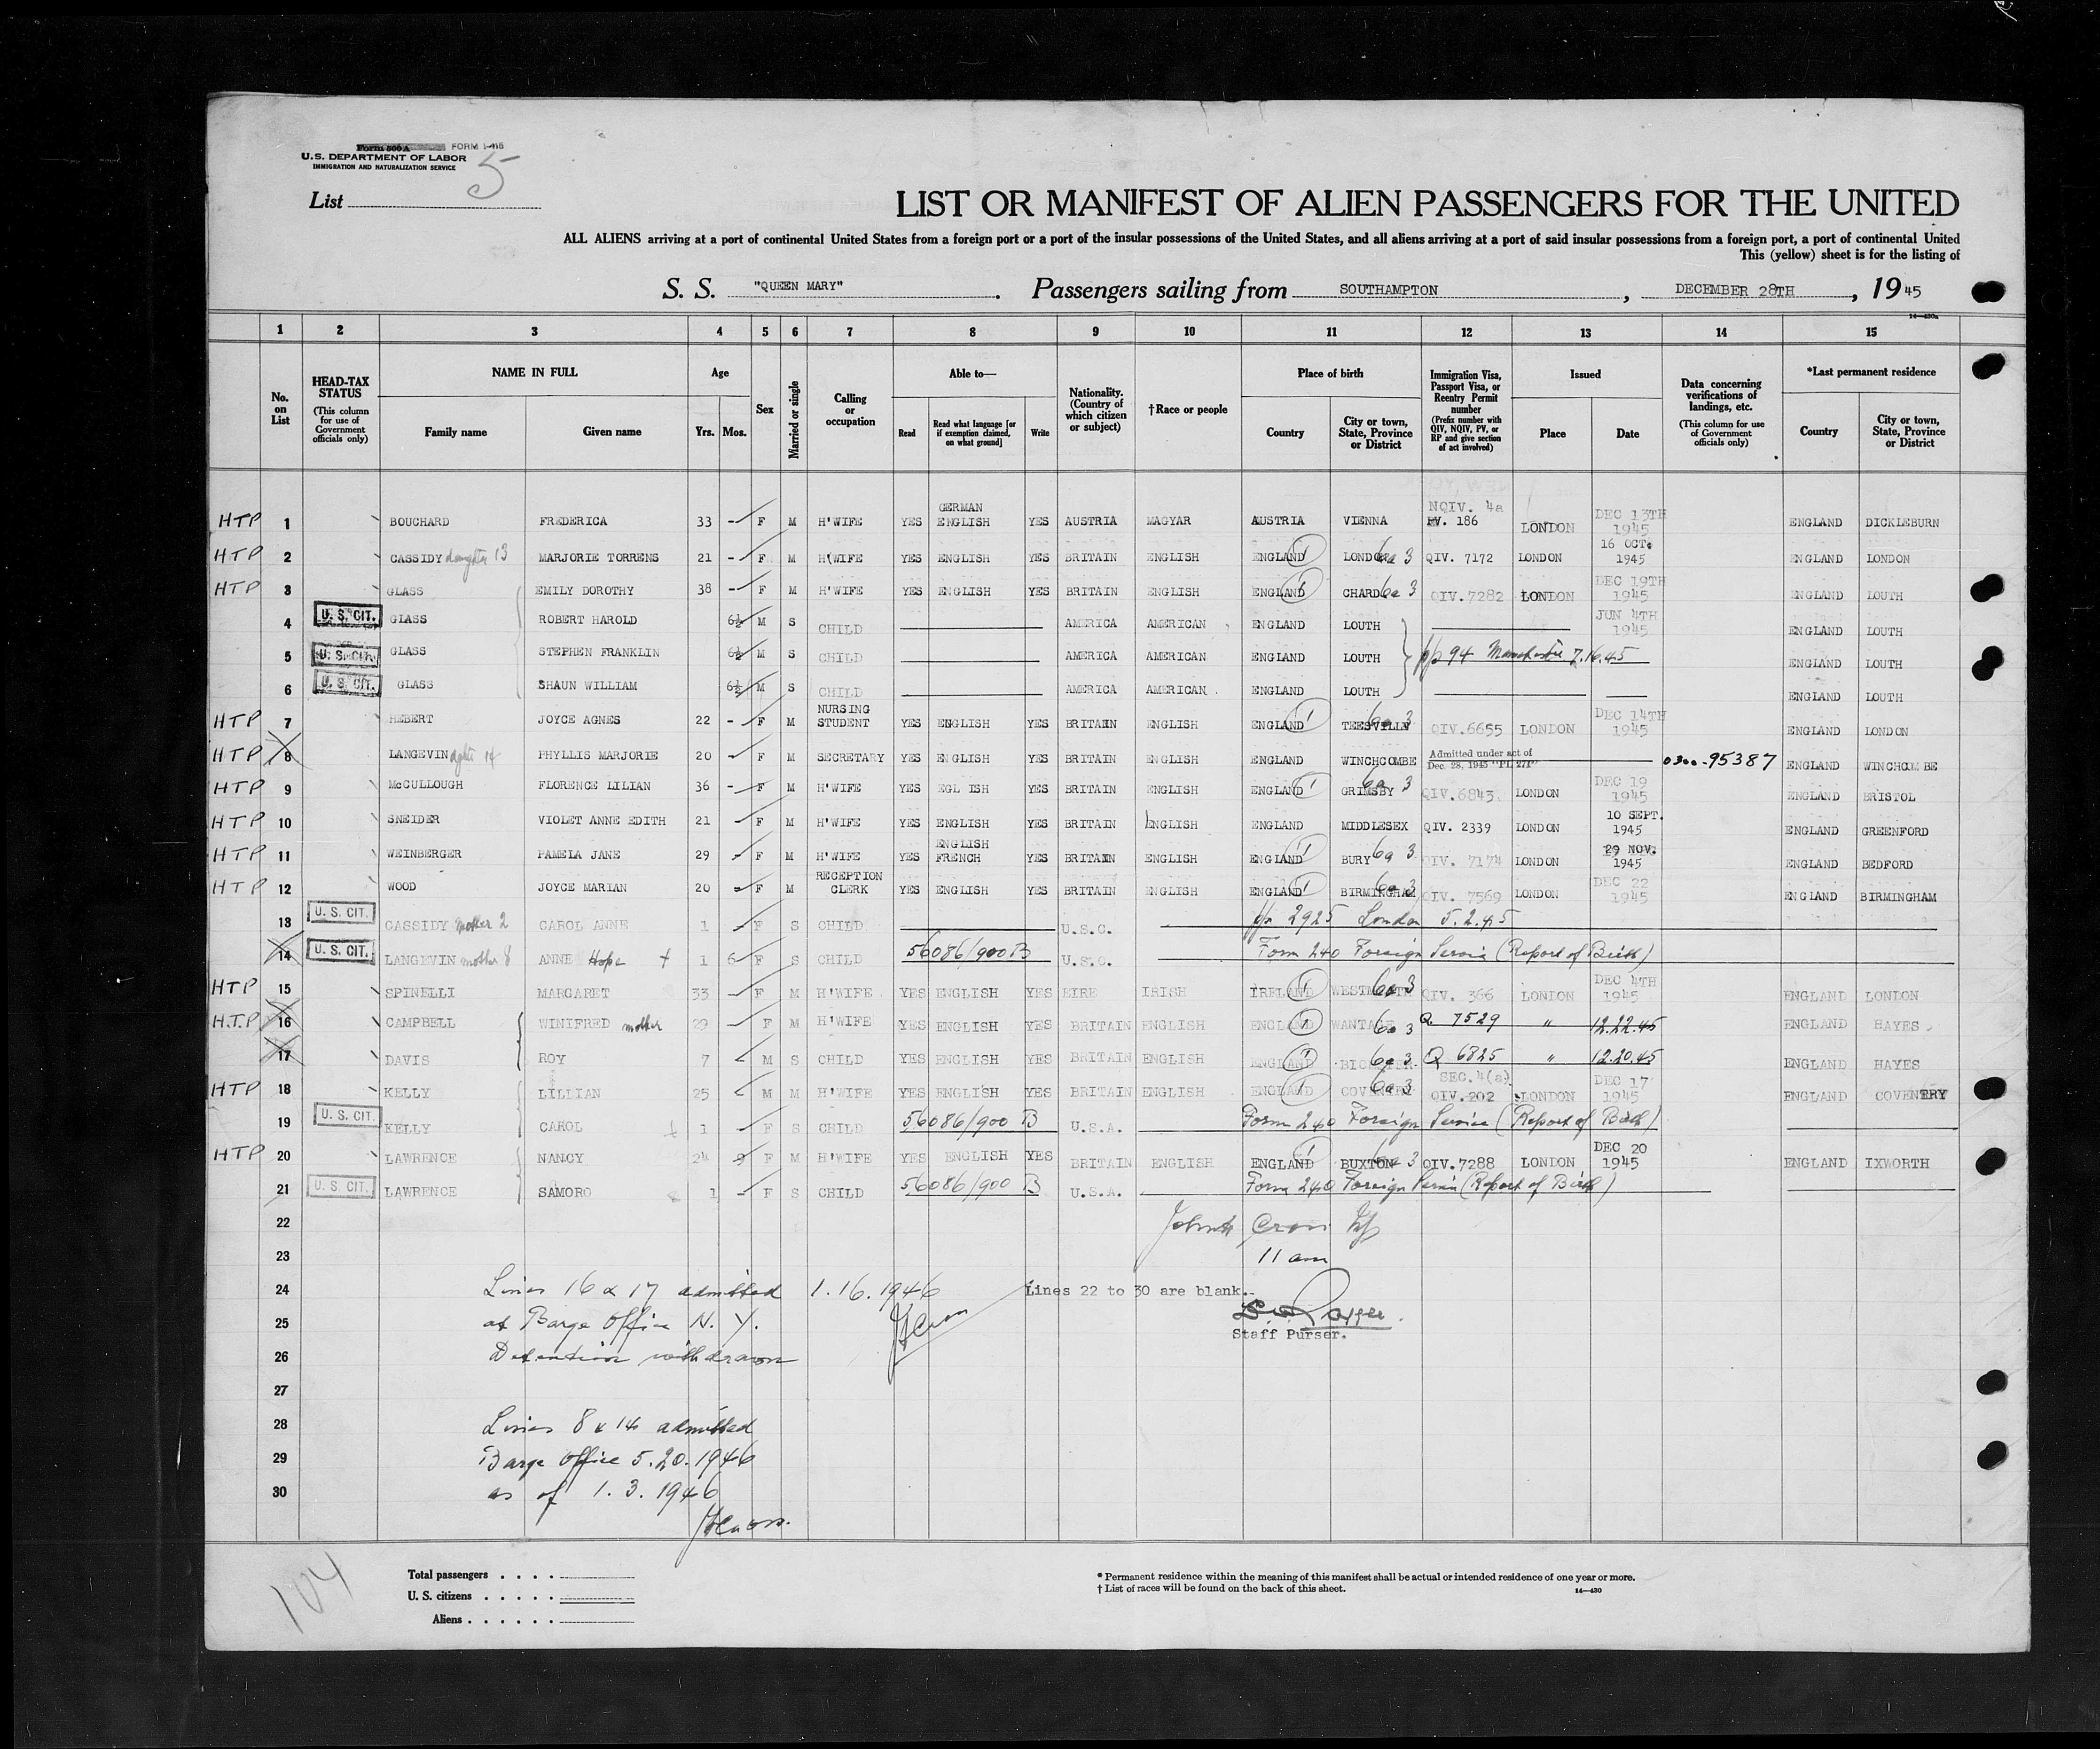 Form 500 A FORM I-415
U.S. DEPARTMENT OF LABOR
IMMIGRATION AND NATURALIZATION SERVICE
5
List
LIST OR MANIFEST OF ALIEN PASSENGERS FOR THE UNITED
ALL ALIENS arriving at a port of continental United States from a foreign port or a port of the insular possessions of the United States, and all aliens arriving at a port of said insular possessions from a foreign port, a port of continental United
This (yellow) sheet is for the listing of
S. S. "QUEEN MARY" . Passengers sailing from SOUTHAMPTON , DECEMBER 28TH , 19 45
1 2 3 4 5 6 7 8 9 10 11 12 13 14 15
No. on List
HEAD-TAX STATUS (This column for use of Government officials only)
NAME IN FULL Family name Given name
Age Yrs. Mos.
Sex
Married or single
Calling or occupation
Able to— Read Read what language [or if exemption claimed, on what ground] Write
Nationality. (Country of which citizen or subject)
†Race or people
Place of birth Country City or town, State, Province or District
Immigration Visa, Passport Visa, or Reentry Permit number (Prefix number with QIV, NQIV, PV, or RP and give section of act involved)
Issued Place Date
Data concerning verifications of landings, etc. (This column for use of Government officials only)
*Last permanent residence Country City or town, State, Province or District
HTP 1 BOUCHARD FREDERICA 33 - F M H'WIFE YES GERMAN ENGLISH YES AUSTRIA MAGYAR AUSTRIA VIENNA NQIV. 4a PV. 186 LONDON DEC 13TH 1945 ENGLAND DICKLEBURN
HTP 2 CASSIDY daughter 13 MARJORIE TORRENS 21 - F M H(WIFE YES ENGLISH YES BRITAIN ENGLISH ENGLAND 1 LONDON 6a 3 QIV. 7172 LONDON 16 OCT. 1945 ENGLAND LONDON
HTP 3 GLASS EMILY DOROTHY 38 - F M H'WIFE YES ENGLISH YES BRITAIN ENGLISH ENGLAND 1 CHARD 6a 3 QIV.7282 LONDON DEC 19TH 1945 ENGLAND LOUTH
4 U. S. CIT. GLASS ROBERT HAROLD 6½ M S CHILD AMERICA AMERICAN ENGLAND LOUTH JUN 4TH 1945 ENGLAND LOUTH
5 U. S. CIT. GLASS STEPHEN FRANKLIN 6½ M S CHILD AMERICA AMERICAN ENGLAND LOUTH pp 94 Manchester 7.16.45 ENGLAND LOUTH
6 U. S. CIT. GLASS SHAUN WILLIAM 6½ M S CHILD AMERICA AMERICAN ENGLAND LOUTH ENGLAND LOUTH
HTP 7 HEBERT JOYCE AGNES 22 - F M NURSING STUDENT YES ENGLISH YES BRITAIN ENGLISH ENGLAND 1 TEESVILLE 6a 3 QIV.6655 LONDON DEC 14TH 1945 ENGLAND LONDON
HTP 8 LANGEVIN 14 PHYLLIS MARJORIE 20 - F M SECRETARY YES ENGLISH YES BRITAIN ENGLISH ENGLAND WINCHCOMBE Admitted under act of Dec. 28, 1945 "PL 271" 0300-95387 ENGLAND WINCHCOMBE
HTP 9 McCULLOUGH FLORENCE LILIAN 36 - F M H'WIFE YES EGL ISH YES BRITAIN ENGLISH ENGLAND 1 GRIMSBY 6a 3 QIV.6843. LONDON DEC 19 1945 ENGLAND BRISTOL
HTP 10 SNEIDER VIOLET ANNE EDITH 21 F M H'WIFE YES ENGLISH YES BRITAIN ENGLISH ENGLAND MIDDLESEX QIV. 2339 LONDON 10 SEPT. 1945 ENGLAND GREENFORD
HTP 11 WEINBERGER PAMELA JANE 29 - F M H'WIFE YES ENGLISH FRENCH YES BRITAIN ENGLISH ENGLAND 1 BURY 6a 3 QIV. 7174 LONDON 29 NOV. 1945 ENGLAND BEDFORD
HTP 12 WOOD JOYCE MARIAN 20 - F M RECEPTION CLERK YES ENGLISH YES BRITAIN ENGLISH ENGLAND 1 BIRMINGHAM 6a 3 QIV. 7569 LONDON DEC 22 1945 ENGLAND BIRMINGHAM
13 U. S. CIT. CASSIDY mother 2 CAROL ANNE 1 - F S CHILD U.S.C. pp 2925 London 5.2.45
14 U. S. CIT. LANGEVIN mother 8 ANNE Hope 1 6 F S CHILD 56086/900 B U.S.C. Form 240 Foreign Service (Report of Birth)
HTP 15 SPINELLI MARGARET 33 - F M H'WIFE. YES ENGLISH YES EIRE IRISH IRELAND 1 WESTMEATH 6a 3 QIV. 366 LONDON DEC 4TH 1945 ENGLAND LONDON
H.T.P. 16 CAMPBELL WINIFRED mother 29 - F M H'WIFE YES ENGLISH YES BRITAIN ENGLISH ENGLAND 1 WANTAGE 6a 3 Q. 7529 " 12.22.45 ENGLAND HAYES
17 DAVIS ROY 7 M S CHILD YES ENGLISH YES BRITAIN ENGLISH ENGLAND 1 6a 3 Q 6825 " 12.20.45 ENGLAND HAYES
HTP 18 KELLY LILLIAN 25 M M H'WIFE YES ENGLISH YES BRITAIN ENGLISH ENGLAND 1 COVENTRY 6a 3 SEC. 4(a) QIV.202 LONDON DEC 17 1945 ENGLAND COVENTRY
19 U. S. CIT. KELLY CAROL 1 - F S CHILD 56086/900 B U.S.A. Form 240 Foreign Service (Report of Birth)
HTP 20 LAWRENCE NANCY 24 9 F M H'WIFE YES ENGLISH YES BRITAIN ENGLISH ENGLAND 1 BUXTON 6a 3 QIV.7288 LONDON DEC 20 1945 ENGLAND IXWORTH
21 U. S. CIT. LAWRENCE SAMORO 1 - F S CHILD 56086/900 B U.S.A. Form 240 Foreign Service (Report of Birth)
22
23 11 am
24 Lines 16 & 17 admitted 1.16.1946 Lines 22 to 30 are blank.-
25 at Barge Office N. Y.
Staff Purser.
26 Detention withdrawn
27
28 Lines 8 & 14 admitted
29 Barge Office 5.20.1946
30 as of 1.3.1946
104
Total passengers . . . .
U. S. citizens . . . . .
Aliens . . . . . .
* Permanent residence within the meaning of this manifest shall be actual or intended residence of one year or more.
† List of races will be found on the back of this sheet. 14—430